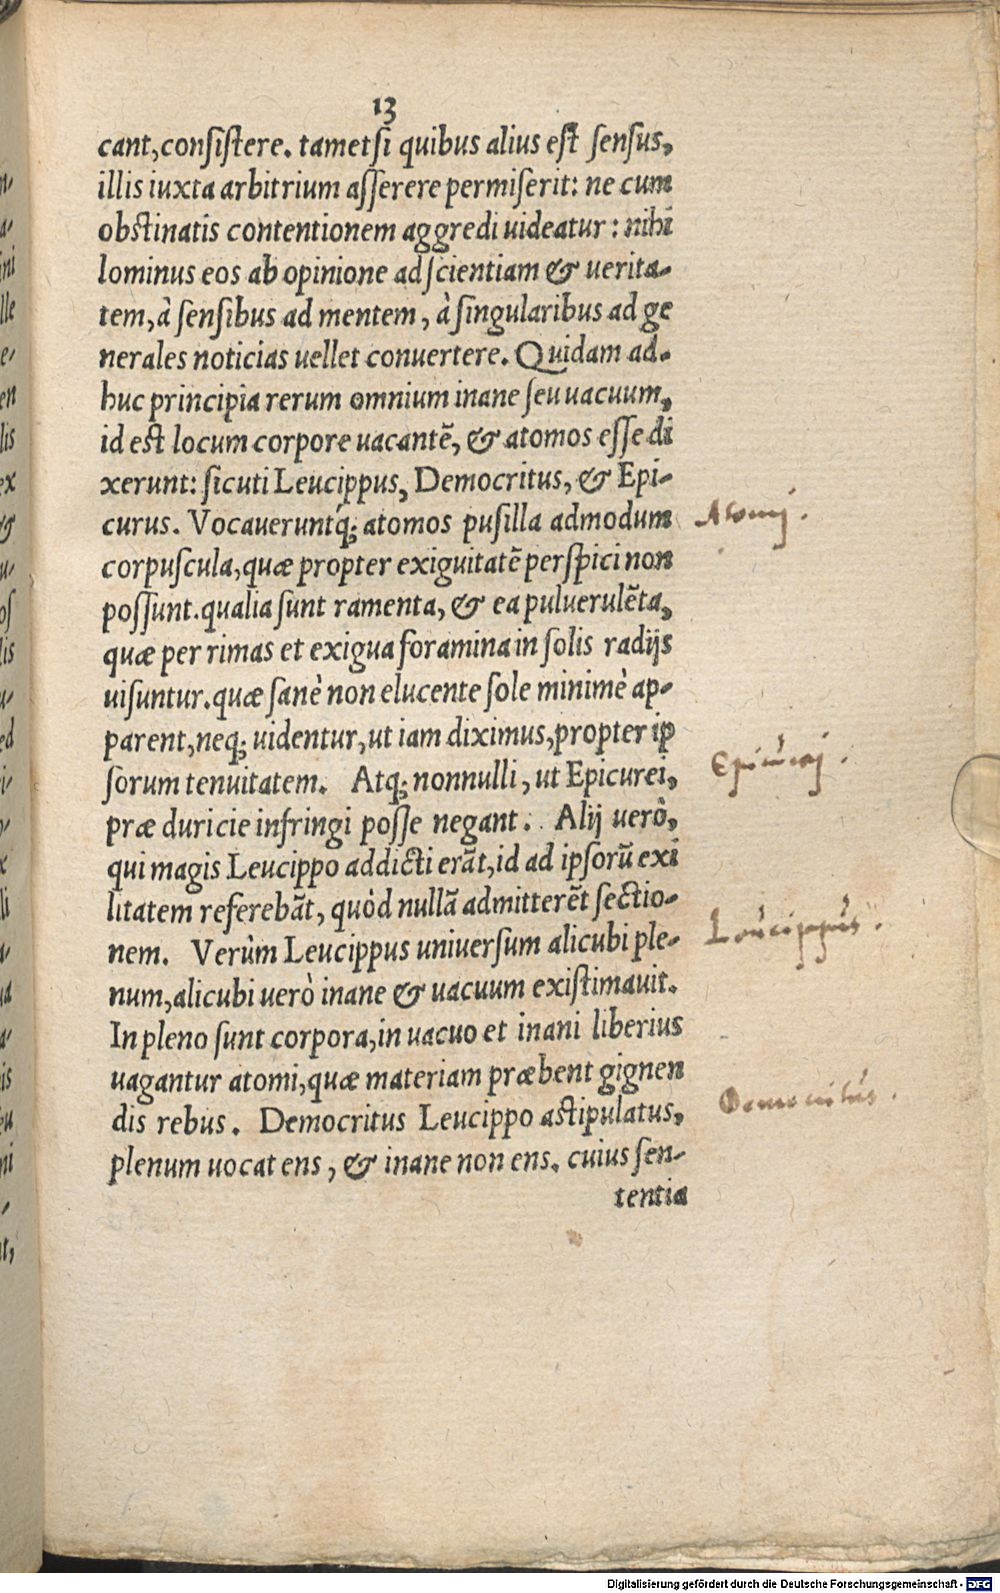 13
cant,consistere. tametsi quibus alius est sensus,
illis iuxta arbitrium asserere permiserit: ne cum
obstinatis contentionem aggredi uideatur: nihi
lominus eos ab opinione ad scientiam & uerita-
tem,à sensibus ad mentem, à singularibus ad ge
nerales noticias uellet conuertere. Quidam ad-
huc principia rerum omnium inane seu uacuum,
id est locum corpore uacantē, & atomos esse di
xerunt: sicuti Leucippus, Democritus, & Epi-
curus. Vocauerunt´q; atomos pusilla admodum
Atomj.
corpuscula,quæ propter exiguitatē perspici non
possunt.qualia sunt ramenta, & ea puluerulēta,
quæ per rimas et exigua foramina in solis radijs
uisuntur.quæ sanè non elucente sole minimè ap-
parent,neq; uidentur,ut iam diximus,propter ip
Epicurej.
sorum tenuitatem. Atq; nonnulli, ut Epicurei,
præ duricie infringi posse negant. Alij uerò,
qui magis Leucippo addicti erāt,id ad ipsorū exi
litatem referebāt, quòd nullā admitterēt sectio-
Leucippus.
nem. Verùm Leucippus uniuersum alicubi ple-
num,alicubi uerò inane & uacuum existimauit.
In pleno sunt corpora,in uacuo et inani liberius
uagantur atomi,quæ materiam præbent gignen
Democritus.
dis rebus. Democritus Leucippo astipulatus,
plenum uocat ens, & inane non ens. cuius sen-
tentia
Digitalisierung gefördert durch die Deutsche Forschungsgemeinschaft - DFG